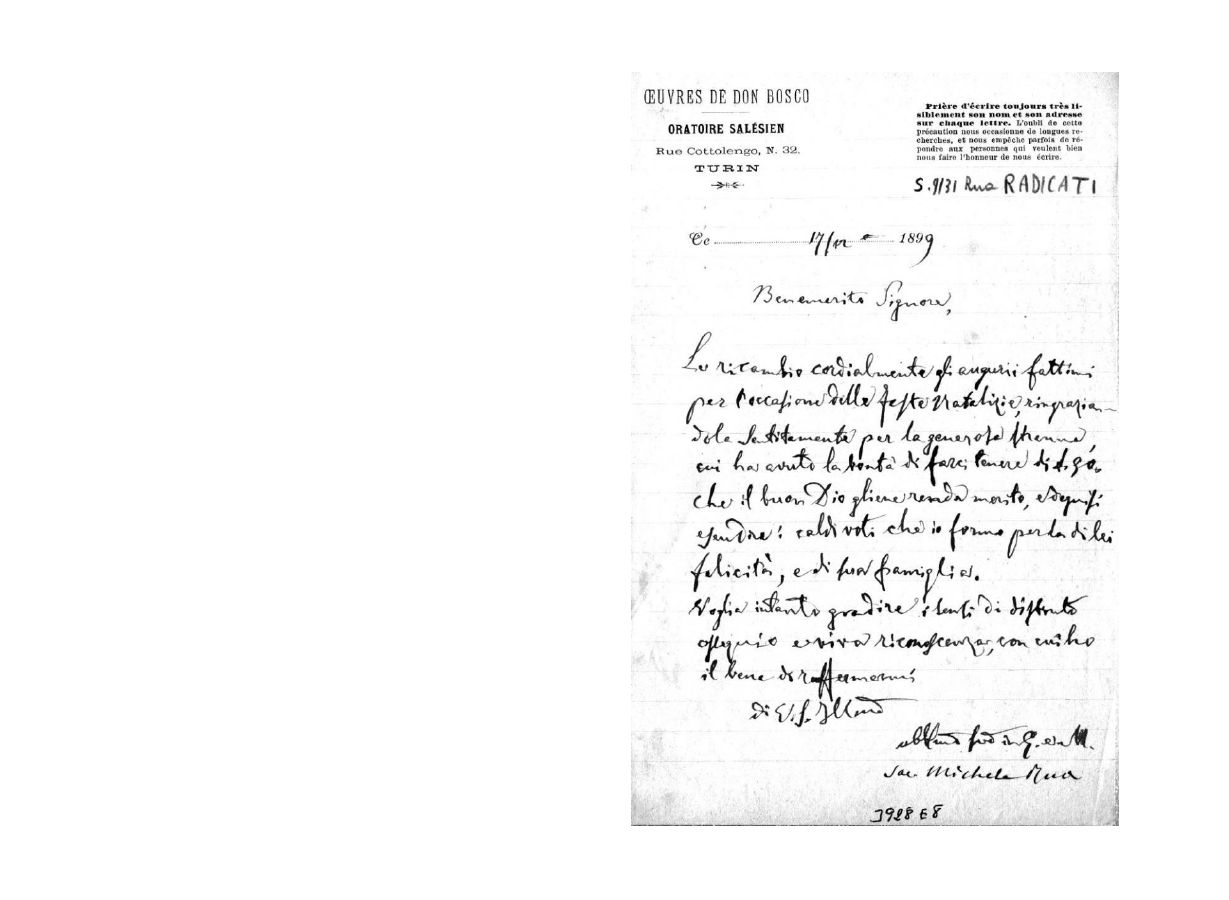 ŒUVRES DE DON BOSCO
ORATOIRE SALÉSIEN
Rue Cottolengo, N. 32.
TURIN
Prière d'écrire toujours très li-
siblement son nom et son adresse
sur chaque lettre. L'oubli de cette
précaution nous occasionne de longues re-
cherches, et nous empêche parfois de ré-
pondre aux personnes qui veulent bien
nous faire l'honneur de nous écrire.
S.9/31 Rua RADICATI
Le 17/12 1899
Benemerito Signore,
Le ricambio cordialmente gli augurii fattimi
per l'occasione delle feste Natalizie, ringrazian-
dola sentitamente per la generosa strenna,
cui ha avuto la bontà di farci tenere di
che il buon Dio gliene renda merito, e
esaudire i caldi voti che io formo per la di lei
felicità, e di sua famiglia.
Voglia intanto gradire i sensi di distinto
ossequio e viva riconoscenza, con cui ho
il bene di raffermarmi
di V. S. Ill.ma
in G. e M.
Sac. Michele Rua
3928 E 8